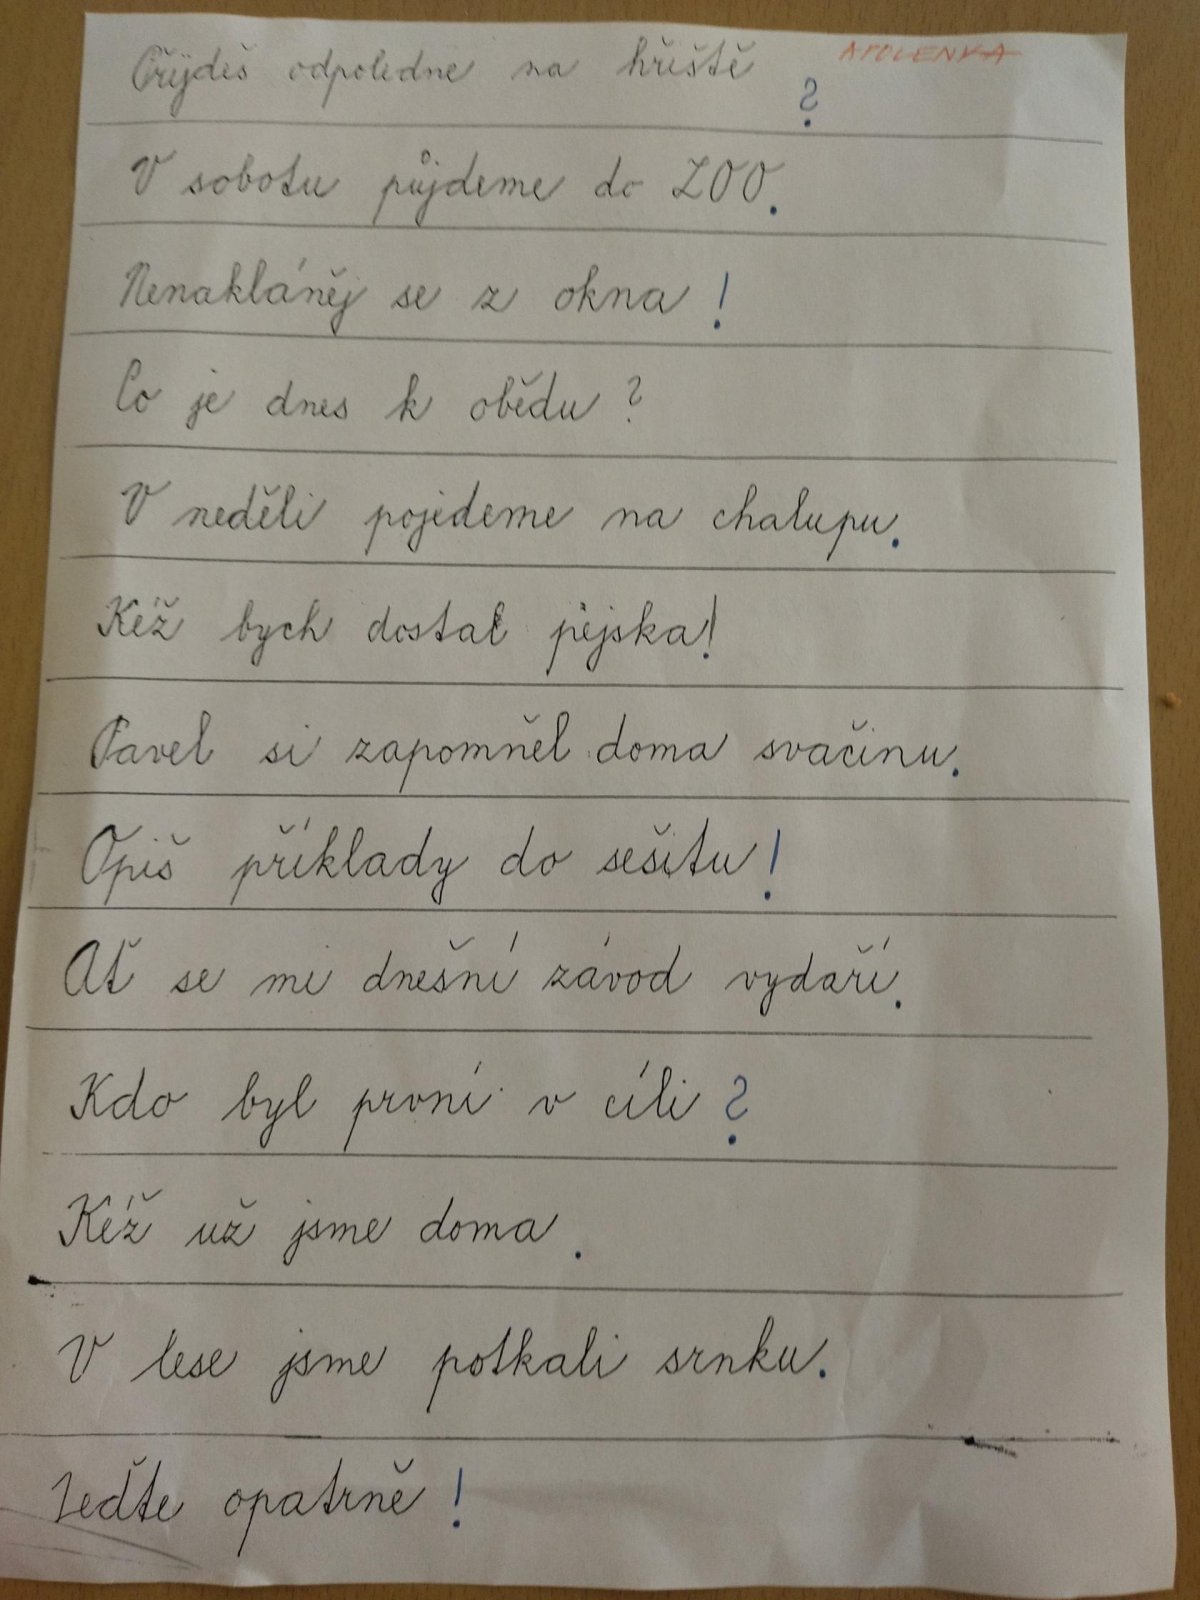 Přijdeš odpoledne na hřiště ? APOLENKA
V sobotu půjdeme do ZOO.
Nenakláněj se z okna !
Co je dnes k obědu ?
V neděli pojedeme na chalupu.
Kéž bych dostal pejska!
Pavel si zapomněl doma svačinu.
Opiš příklady do sešitu !
Ať se mi dnešní závod vydaří.
Kdo byl první v cíli ?
Kéž už jsme doma .
V lese jsme potkali srnku.
Jeďte opatrně !